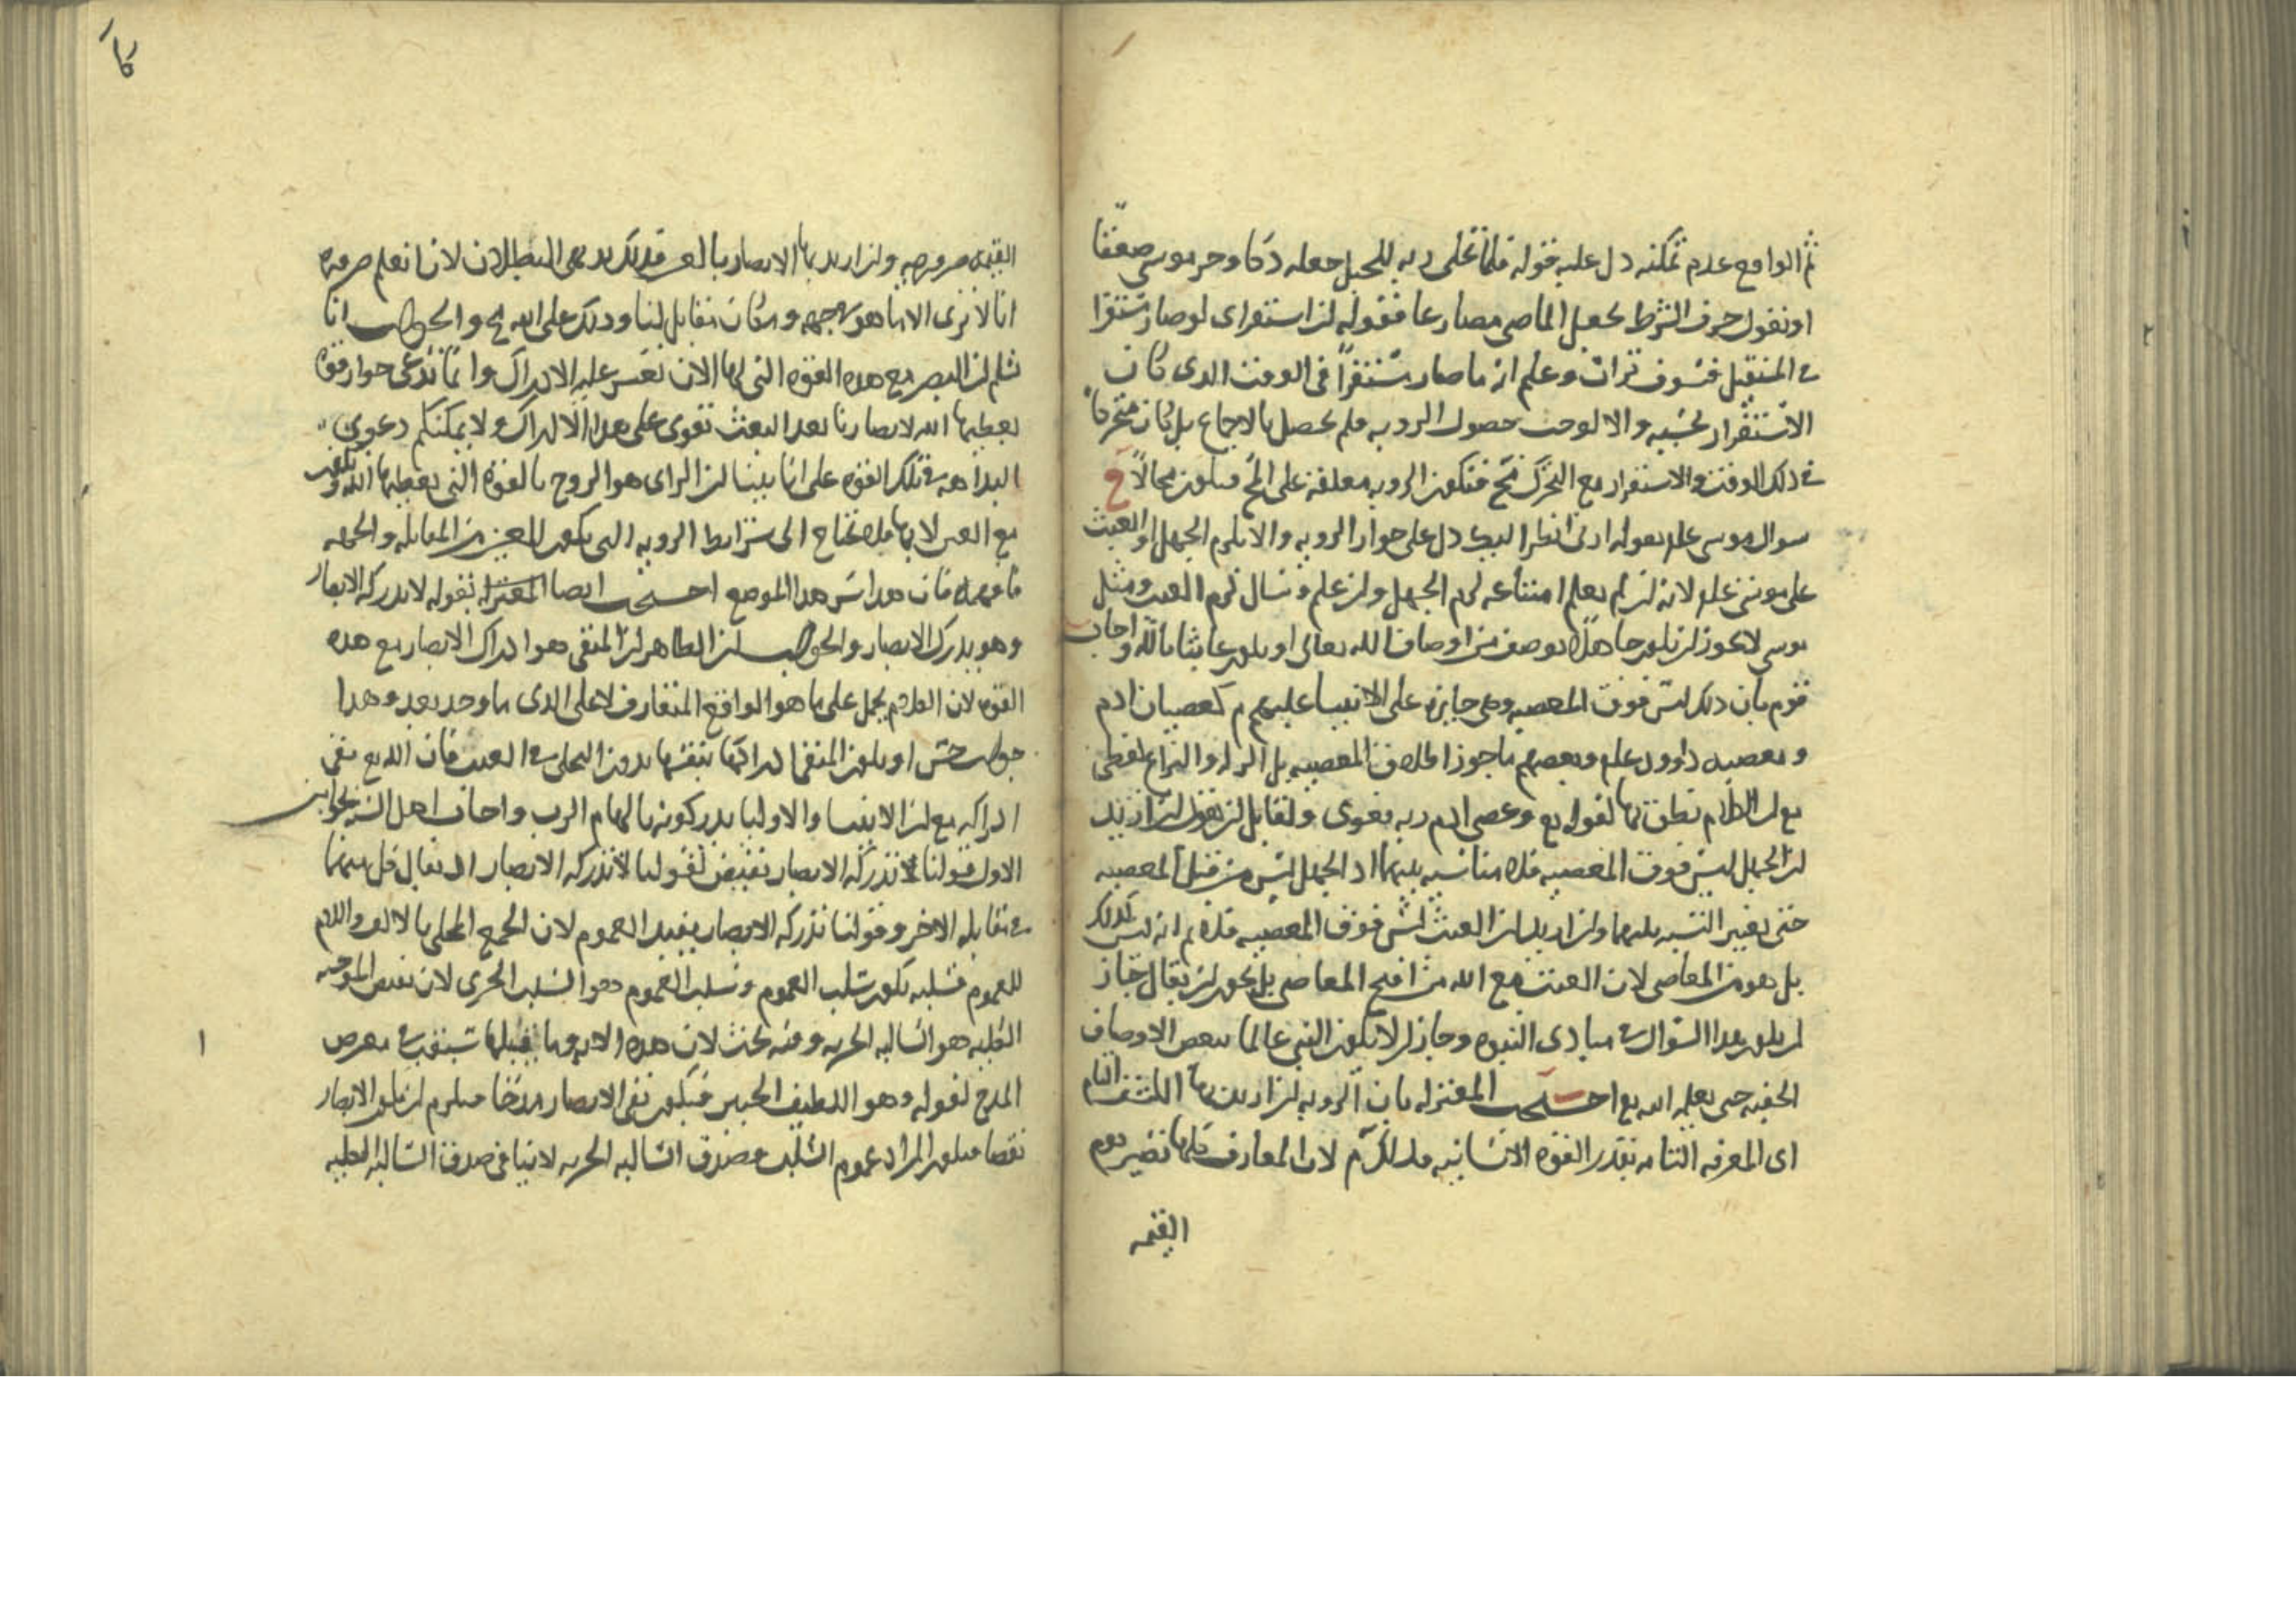 ثم الواقع عدم تمكنه دل عليه قوله فلما تجلى ربه للجبل جعله دكا وخر موسى صعقا
او نقول حرف الشرط يجعل الماضى مضارعا فقوله ان استقر اى لو صار مستقرا
فى المستقبل فسوف ترانى وعلم انه ما صار مستقرا فى الوقت الذى كان
الاستقرار والا لوجب حصول الروية ولم يحصل بالاجماع بل كان متحركا
فى ذلك الوقت والاستقرار مع التحرك مح فتكون الروية معلقة على المح فيكون محالا
سوال موسى علم بقوله ارنى انظر اليك دل على جواز الروية والا يلزم الجهل او العبث
على موسى علم لانه ان لم يعلم امتناعه لزم الجهل وان علم وسال لزم العبث ومثل
موسى لا يجوز ان يكون جاهلا بوصف من اوصاف الله تعالى او يكون عابثا بالله واجاب
قوم بان ذلك ليس فوق المعصية وهى جايزة على الانبيا عليهم م كعصيان ادم
ومعصية داوود علم وبعضهم ما جوز اطلاق المعصية بل الزلة والنزاع لفظى
مع ان الكلام نطق بها لقوله تع وعصى ادم ربه فغوى ولقايل ان يقول ان اريد
ان الجهل ليس فوق المعصية فلا مناسبة بينهما اذ الجهل ليس من قبيل المعصية
حتى يعتبر النسبة بينهما وان اريد ان العبث ليس فوق المعصية فلا م انه ليس كذلك
بل هو من المعاصى لان العبث مع الله من اقبح المعاصى بل يحق ان يقال جاز
ان يكون هذا السوال فى مبادى النبوة وجاز ان لا يكون النبى عالما ببعض الاوصاف
الخفية حتى يعلمه الله تع احتجت المعتزلة بان الروية ان اريد بها الكشف التام
اى المعرفة التامة بقدر القوة الانسانية فذلك م لان المعارف كلها تصير يوم
القيمه
القيمة ضرورية وان اريد بها الابصار بالعين فذلك بديهى البطلان لانا نعلم ضرورة
انا لا نرى الا ما هو فى جهة ومكان مقابل لنا وذلك على الله مح والجواب انا
نسلم ان البصر مع هذه القوة التى لها الان يعسر عليه الادراك وانما ندعى جواز قوة
يعطيها الله لابصارنا بعد البعث تقوى على هذا الادراك ولا يمكنكم دعوى
البداهة فى تلك القوة على انا بينا ان الراى هو الروح بالقوة التى يعطيها الله ويكون
مع العين لا بها فلا تحتاج الى شرايط الروية التى يكون للعين من المقابلة والجهة
فافهمه فان هذا سر هذا الموضع احتجت ايضا المعتزلة بقوله لا يدركه الابصار
وهو يدرك الابصار والجواب ان الظاهر ان المنفى هو ادراك الابصار مع هذه
القوة لان الكلام يحمل على ما هو الواقع المتعارف لا على الذى ما وجد بعد وهذا
جواب حسن او يكون المنفى ادراكها بنفسها بدون التجلى فى العين فان الله تع نفى
ادراكه مع ان الانبيا والاوليا يدركونه بالهام الرب واجاب اهل السنة بجوابين
الاول قولنا لا تدركه الابصار نقيض لقولنا تدركه الابصار اذ يقال كل منهما
فى مقابلة الاخر وقولنا تدركه الابصار يفيد العموم لان الجمع المحلى بالالف واللام
للعموم فسلبه يكون سلب العموم وسلب العموم هو السلب الجزى لان نقيض الموجبة
الكلية هو السالبة الجزية وفيه بحث لان هذه الاية وما قبلها سيقت فى معرض
المدح لقوله وهو اللطيف الخبير فيكون نفى الابصار مدحا فيلزم ان يكون الابصار
نقصا فيكون المراد عموم السلب وصدق السالبة الجزية لا ينافى صدق السالبة الكلية